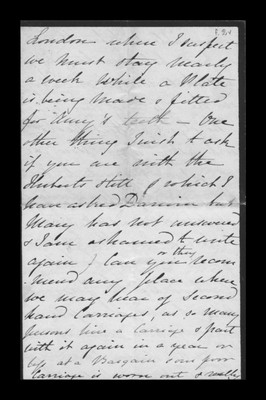 London when I suspect
we must stay nearly
a week while a Plate
is being made & fitted
for Amy's teeth — One
other thing I wish to ask
if you are with the
still (which I
have asked Darwin but
Mary has not answered
& I am ashamed to write
again) Can you
or they
recom
-mend any place where
we may hear of Second
hand Carriages, as so many
persons hire a Carriage & part
with it again in a year or
less at a Bargain & our poor
Carriage is worn out & really